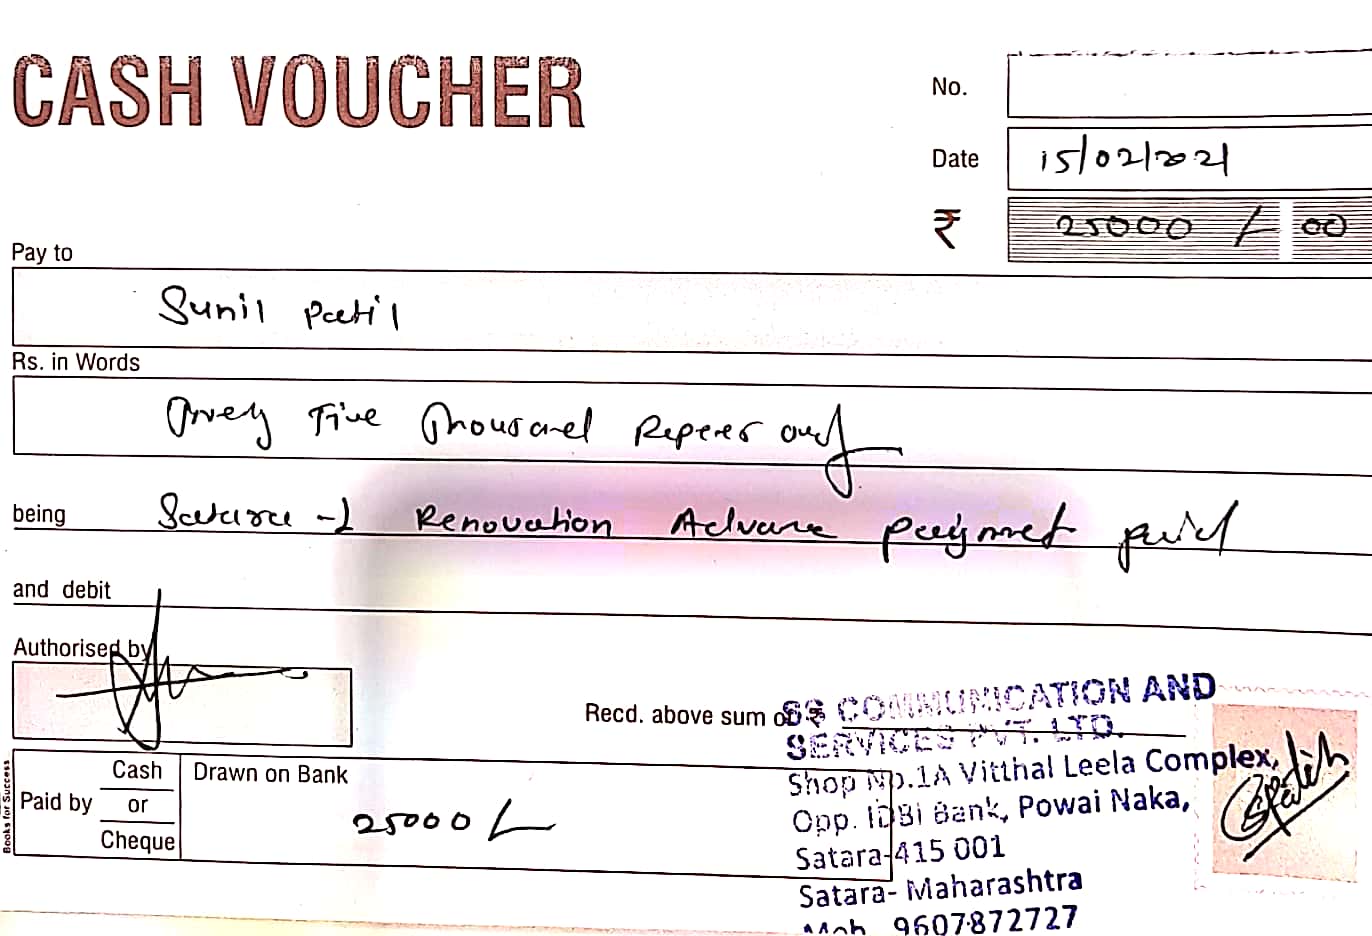 CASH VOUCHER
No.
Date 15/02/2021
₹ 25000 /- 00
Pay to
Sunil Patil
Rs. in Words
Five Thousand only
being Satara -1 Renovation Advance paid
and debit
Authorised by
Recd. above sum of ₹
SS COMMUNICATION AND
SERVICES PVT. LTD.
Shop No.1A Vitthal Leela Complex,
Opp. IDBI Bank, Powai Naka,
Satara-415 001
Satara- Maharashtra
Mob. 9607872727
Paid by Cash or Cheque
Drawn on Bank
25000/-
Books for Success